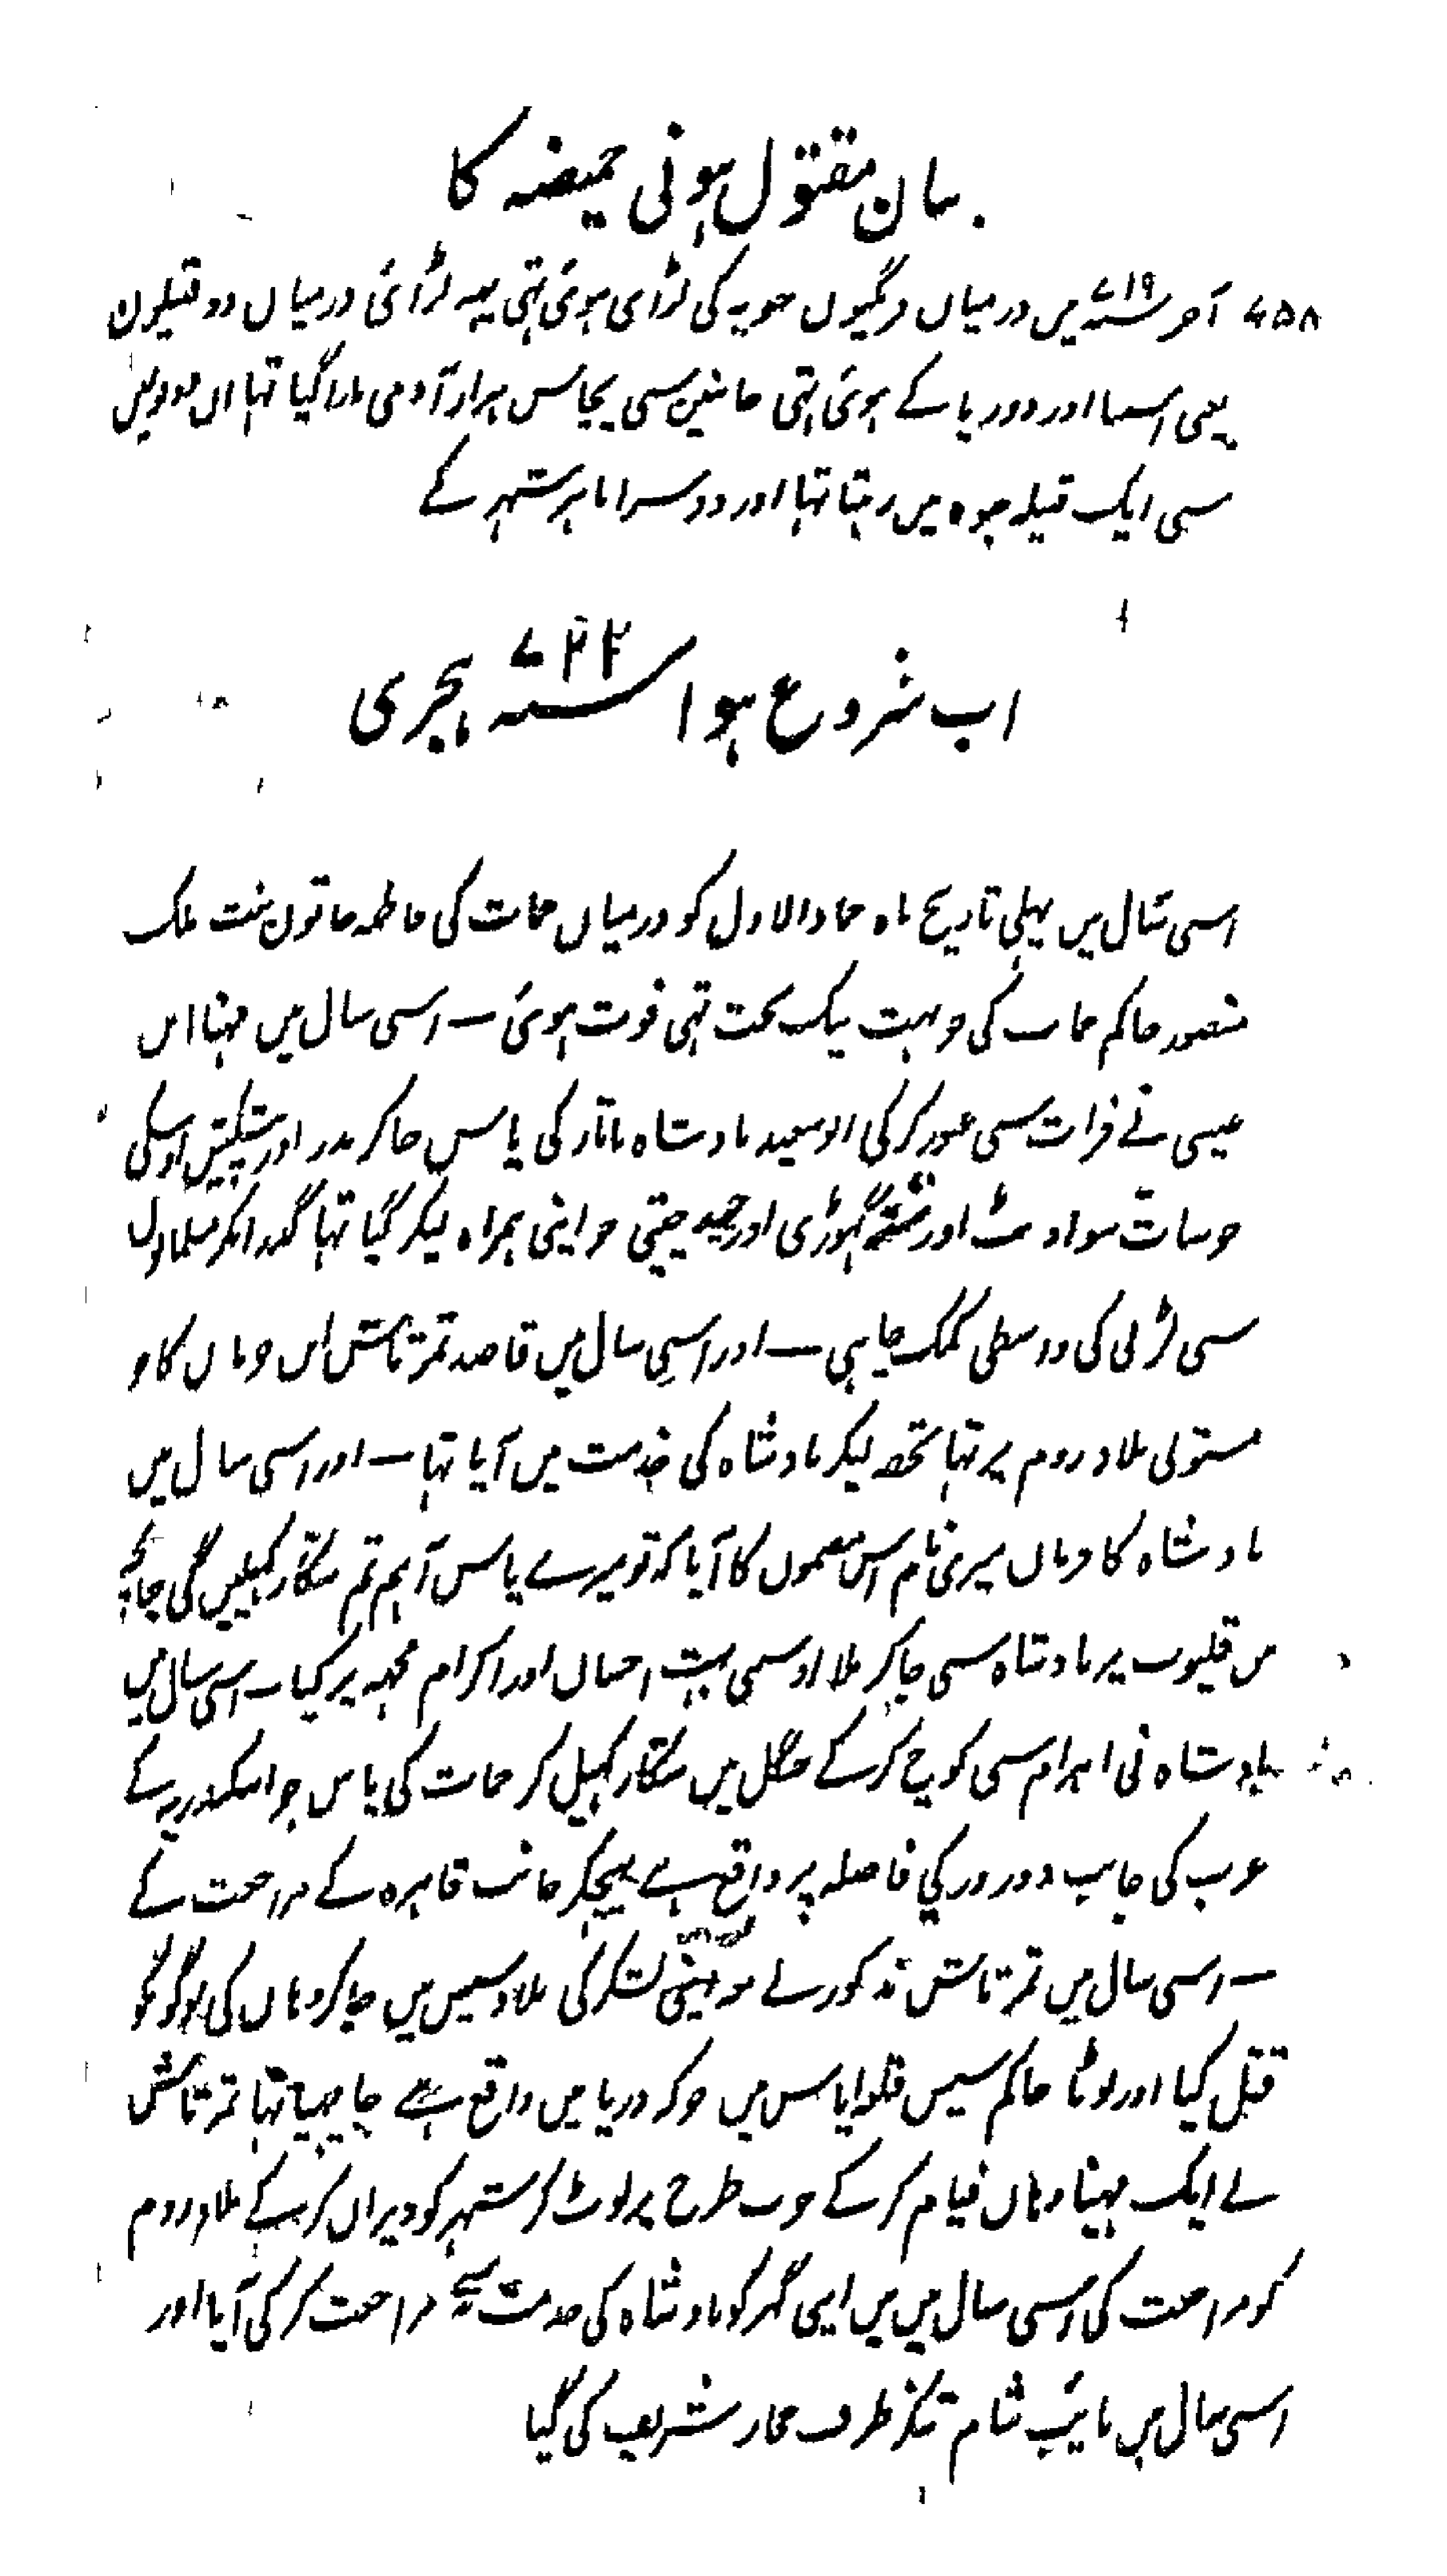 بیان مقتول ہونی حمیضہ کا
۷۵۸ آخر سنہ ۷۱۹ میں درمیان فرنگیوں جنویہ کی لڑای ہوئی تہی یہہ لڑائی درمیان دو قبیلون
یعنی اسبنا اور دوریا کے ہوئی تہی جانبین سی پچاس ہزار آدمی مارا گیا تہا ان دونوں میں
سی ایک قبیلہ جنوہ میں رہتا تہا اور دوسرا باہر شہر کے
اب شروع ہوا سنہ ۷۲۲ ہجری
اسی سال میں پہلی تاریخ ماہ جمادالاول کو درمیان حمات کی فاطمہ خاتون بنت ملک
منصور حاکم حمات کی جو بہت نیک بخت تہی فوت ہوئی ـ اسی سال میں مہنا ابن
عیسی نے فرات سی عبور کر کی ابوسعید بادشاہ تاتار کی پاس جا کر نذر اور پیشکش اوسکی
سات سو اونٹ اور ستر گہوڑی اور چند چیتی جو اپنی ہمراہ لیکر گیا تہا گذرانکر مسلمانوں
سی لڑنی کی واسطی کمک چاہی ـ اور اسی سال میں قاصد تمرتاش ابن جوبان کا جو
مستولی بلاد روم پر تہا تحفہ لیکر بادشاہ کی خدمت میں آیا تہا ـ اور اسی سال میں
بادشاہ کا فرمان میری نام اس مضمون کا آیا کہ تو میرے پاس آ ہم تم شکار کہیلیں گی چنانچہ
میں قلیوب پر بادشاہ سی جا کر ملا اوسی بہت احسان اور اکرام مجہہ پر کیا ـ اسی سال میں
بادشاہ نی اہرام سی کوچ کر کے جنگل میں شکار کہیل کر حمات کی پاس جو اسکندریہ کے
غرب کی جانب دو روز کی فاصلہ پر واقع ہے پہنچکر جانب قاہرہ کے مراجعت کے
ـ اسی سال میں تمرتاش مذکور نے معہ اپنی لشکر کی بلاد سیس میں جا کر وہاں کی لوگو نکو
قتل کیا اور لوٹا حاکم سیس قلعہ ایاس میں جو کہ دریا میں واقع ہے جا چہپا تہا تمرتاش
نے ایک مہینا وہاں قیام کر کے خوب طرح پر لوٹ کر شہر کو ویران کر کے بلاد روم
کو مراجعت کی اسی سال میں میں اپنی گہر کو بادشاہ کی خدمت سے مراجعت کر کی آیا اور
اسی سال میں نائب شام تنکز طرف حجاز شریف کی گیا